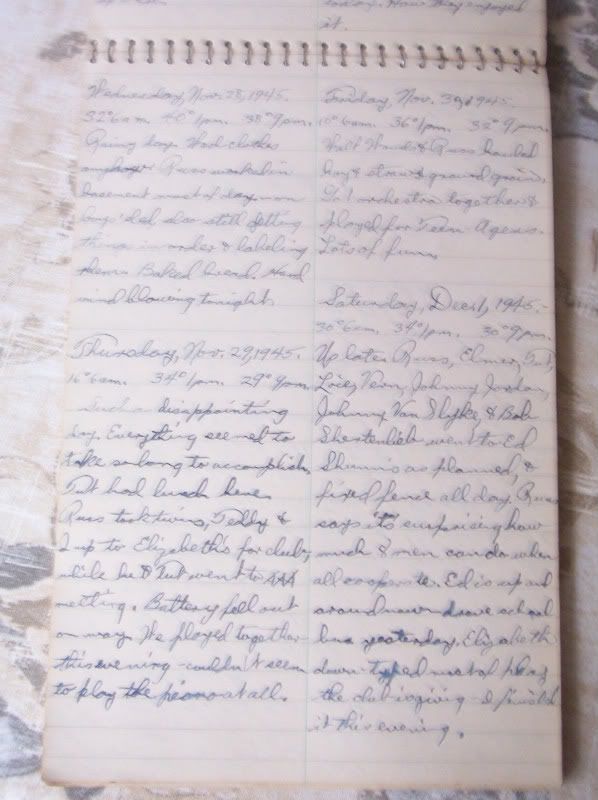 today. How they enjoyed
it.
Wednesday, Nov. 28, 1945.
32° 6am. 40° 1pm. 38° 9pm.
Rainy day. Washed clothes
anyhow. Russ worked in
basement most of day on
did also still getting
things in order & labeling
them. Baked bread. Hard
wind blowing tonight.
Thursday, Nov. 29, 1945.
16° 6am. 34° 1pm. 29° 9pm.
Such a disappointing
day. Everything seemed to
take so long to accomplish.
Tut had lunch here.
Russ took twins, Teddy &
I up to Elizabeth's for club,
while he & Tut went to AAA
meeting. Battery fell out
on way. We played together
this evening - couldn't seem
to play the piano at all.
Friday, Nov. 30, 1945.
6am. 36° 1pm. 32° 9pm.
& Russ hauled
hay & straw & ground grain.
orchestra together &
played for Teen-Agers.
Lots of fun.
Saturday, Dec. 1, 1945.
30° 6am. 34° 1pm. 30° 9pm.
Up late. Russ, Elmer, Tut,
Vern, Johnny Jordan,
Johnny Van Slyke, & Bob
went to Ed
as planned, &
fixed fence all day. Russ
says it's surprising how
much 8 men can do when
all cooperate. Ed is up and
around now - drove school
bus yesterday. Elizabeth
down - typed most of play
the club is giving - I finished
it this evening.